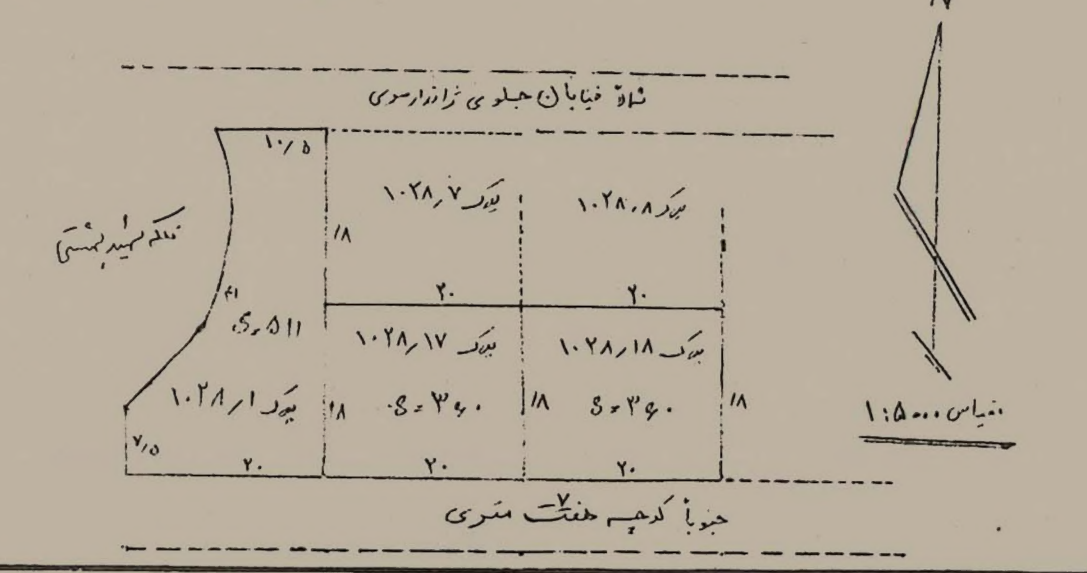 شمالاً خیابان جلوی ژاندارمری
۱۰/۵
پلاک ۱۰۲۸/۷
پلاک ۱۰۲۸/۸
فلکه شهید بهشتی
۱۸
۴۱
۲۰
۲۰
S=۵۱۱
پلاک ۱۰۲۸/۱۷
پلاک ۱۰۲۸/۱۸
پلاک ۱۰۲۸/۱
۱۸
S=۳۶۰
۱۸
S=۳۶۰
۱۸
مقیاس ۱:۵۰۰۰
۷/۵
۲۰
۲۰
۲۰
جنوباً کوچه هفت ۷ متری